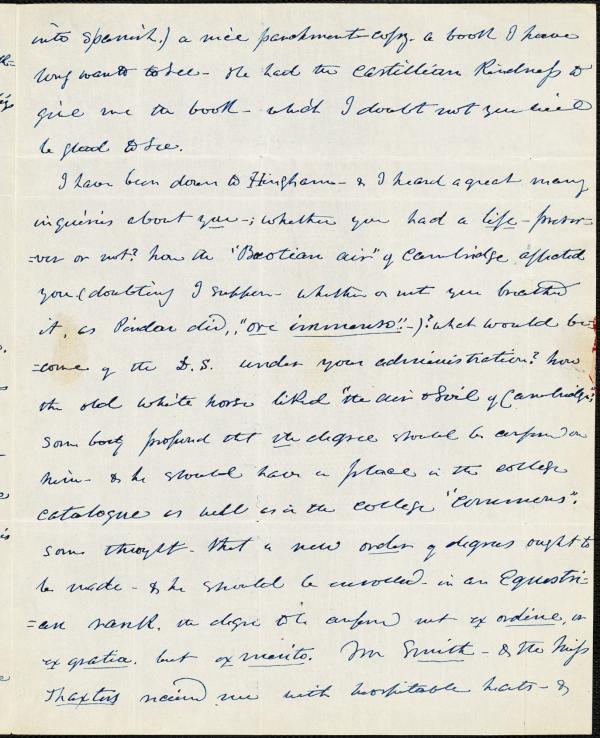 into Spanish.) a nice parchment copy. a book I have
long wanted to see - He had the Castillian Kindness to
give me the book - which I doubt not you will
be glad to see.
I have been down to Hingham - & I heard a great many
inquiries about you -; whether you had a life-preser-
=ver or not? how the "Bœotian air" of Cambridge affected
you (doubting I suppose - whether or not you breathed
it, as Pindar did, "ore immenso" -)? what would be-
=come of the D.S. under your administration? how
the old white horse liked "the air & soil of Cambridge,"
some body proposed that the degree should be conferred on
him - & he should have a place in the college
catalogue as well as in the college "commons".
some thought - that a new order of degrees ought to
be made - & he should be enrolled - in an Equestri-
=an rank. the degree to be conferred not ex ordine, or
ex gratia. but ex merito. Mr Smith - & the Miss
Thaxters received me with hospitable hearts - &